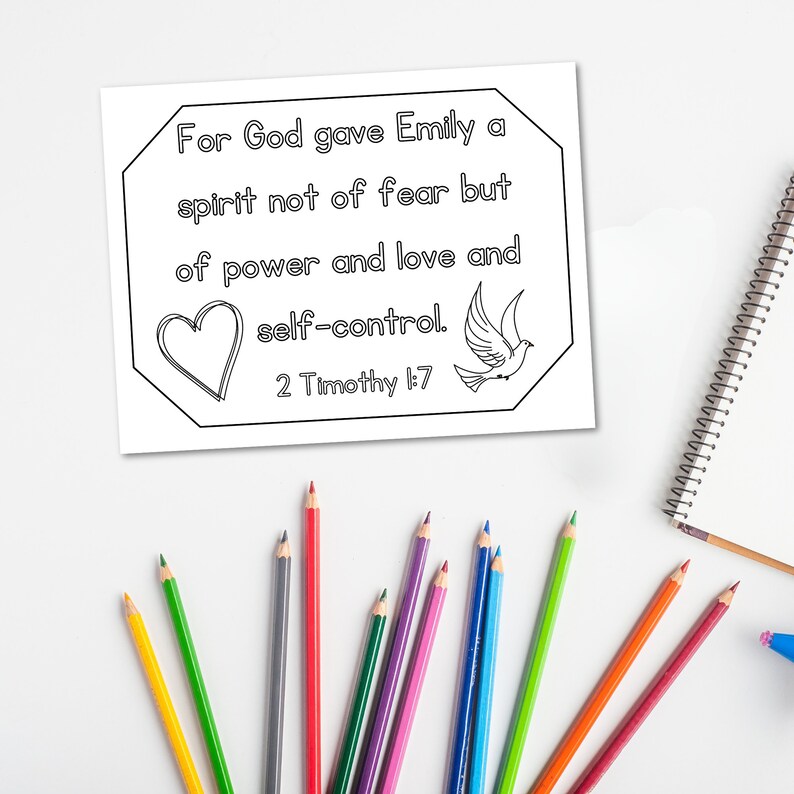 For God gave Emily a
spirit not of fear but
of power and love and
self-control.
2 Timothy 1:7